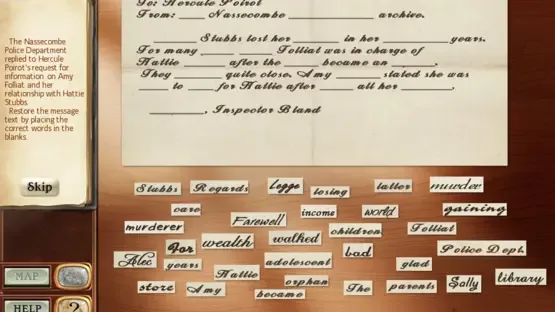 The Nassecombe
Police Department
replied to Hercule
Poirot's request for
information on Amy
Folliat and her
relationship with Hattie
Stubbs.
Restore the message
text by placing the
correct words in the
blanks.
Skip
MAP
HELP
?
To: Hercule Poirot
From: ____ Nassecombe ____ archive.
____ Stubbs lost her ____ in her ____ years.
For many ____ ____ Folliat was in charge of
Hattie ____ after the ____ became an ____.
They ____ quite close. Amy ____ stated she was
____ to ____ for Hattie after ____ all her ____.
____, Inspector Bland
Stubbs Regards Legge losing latter murder
care income world gaining
murderer Farewell children Folliat
for wealth walked bad Police Dept.
Alec years adolescent glad
Hattie orphan The parents Sally library
store Amy became